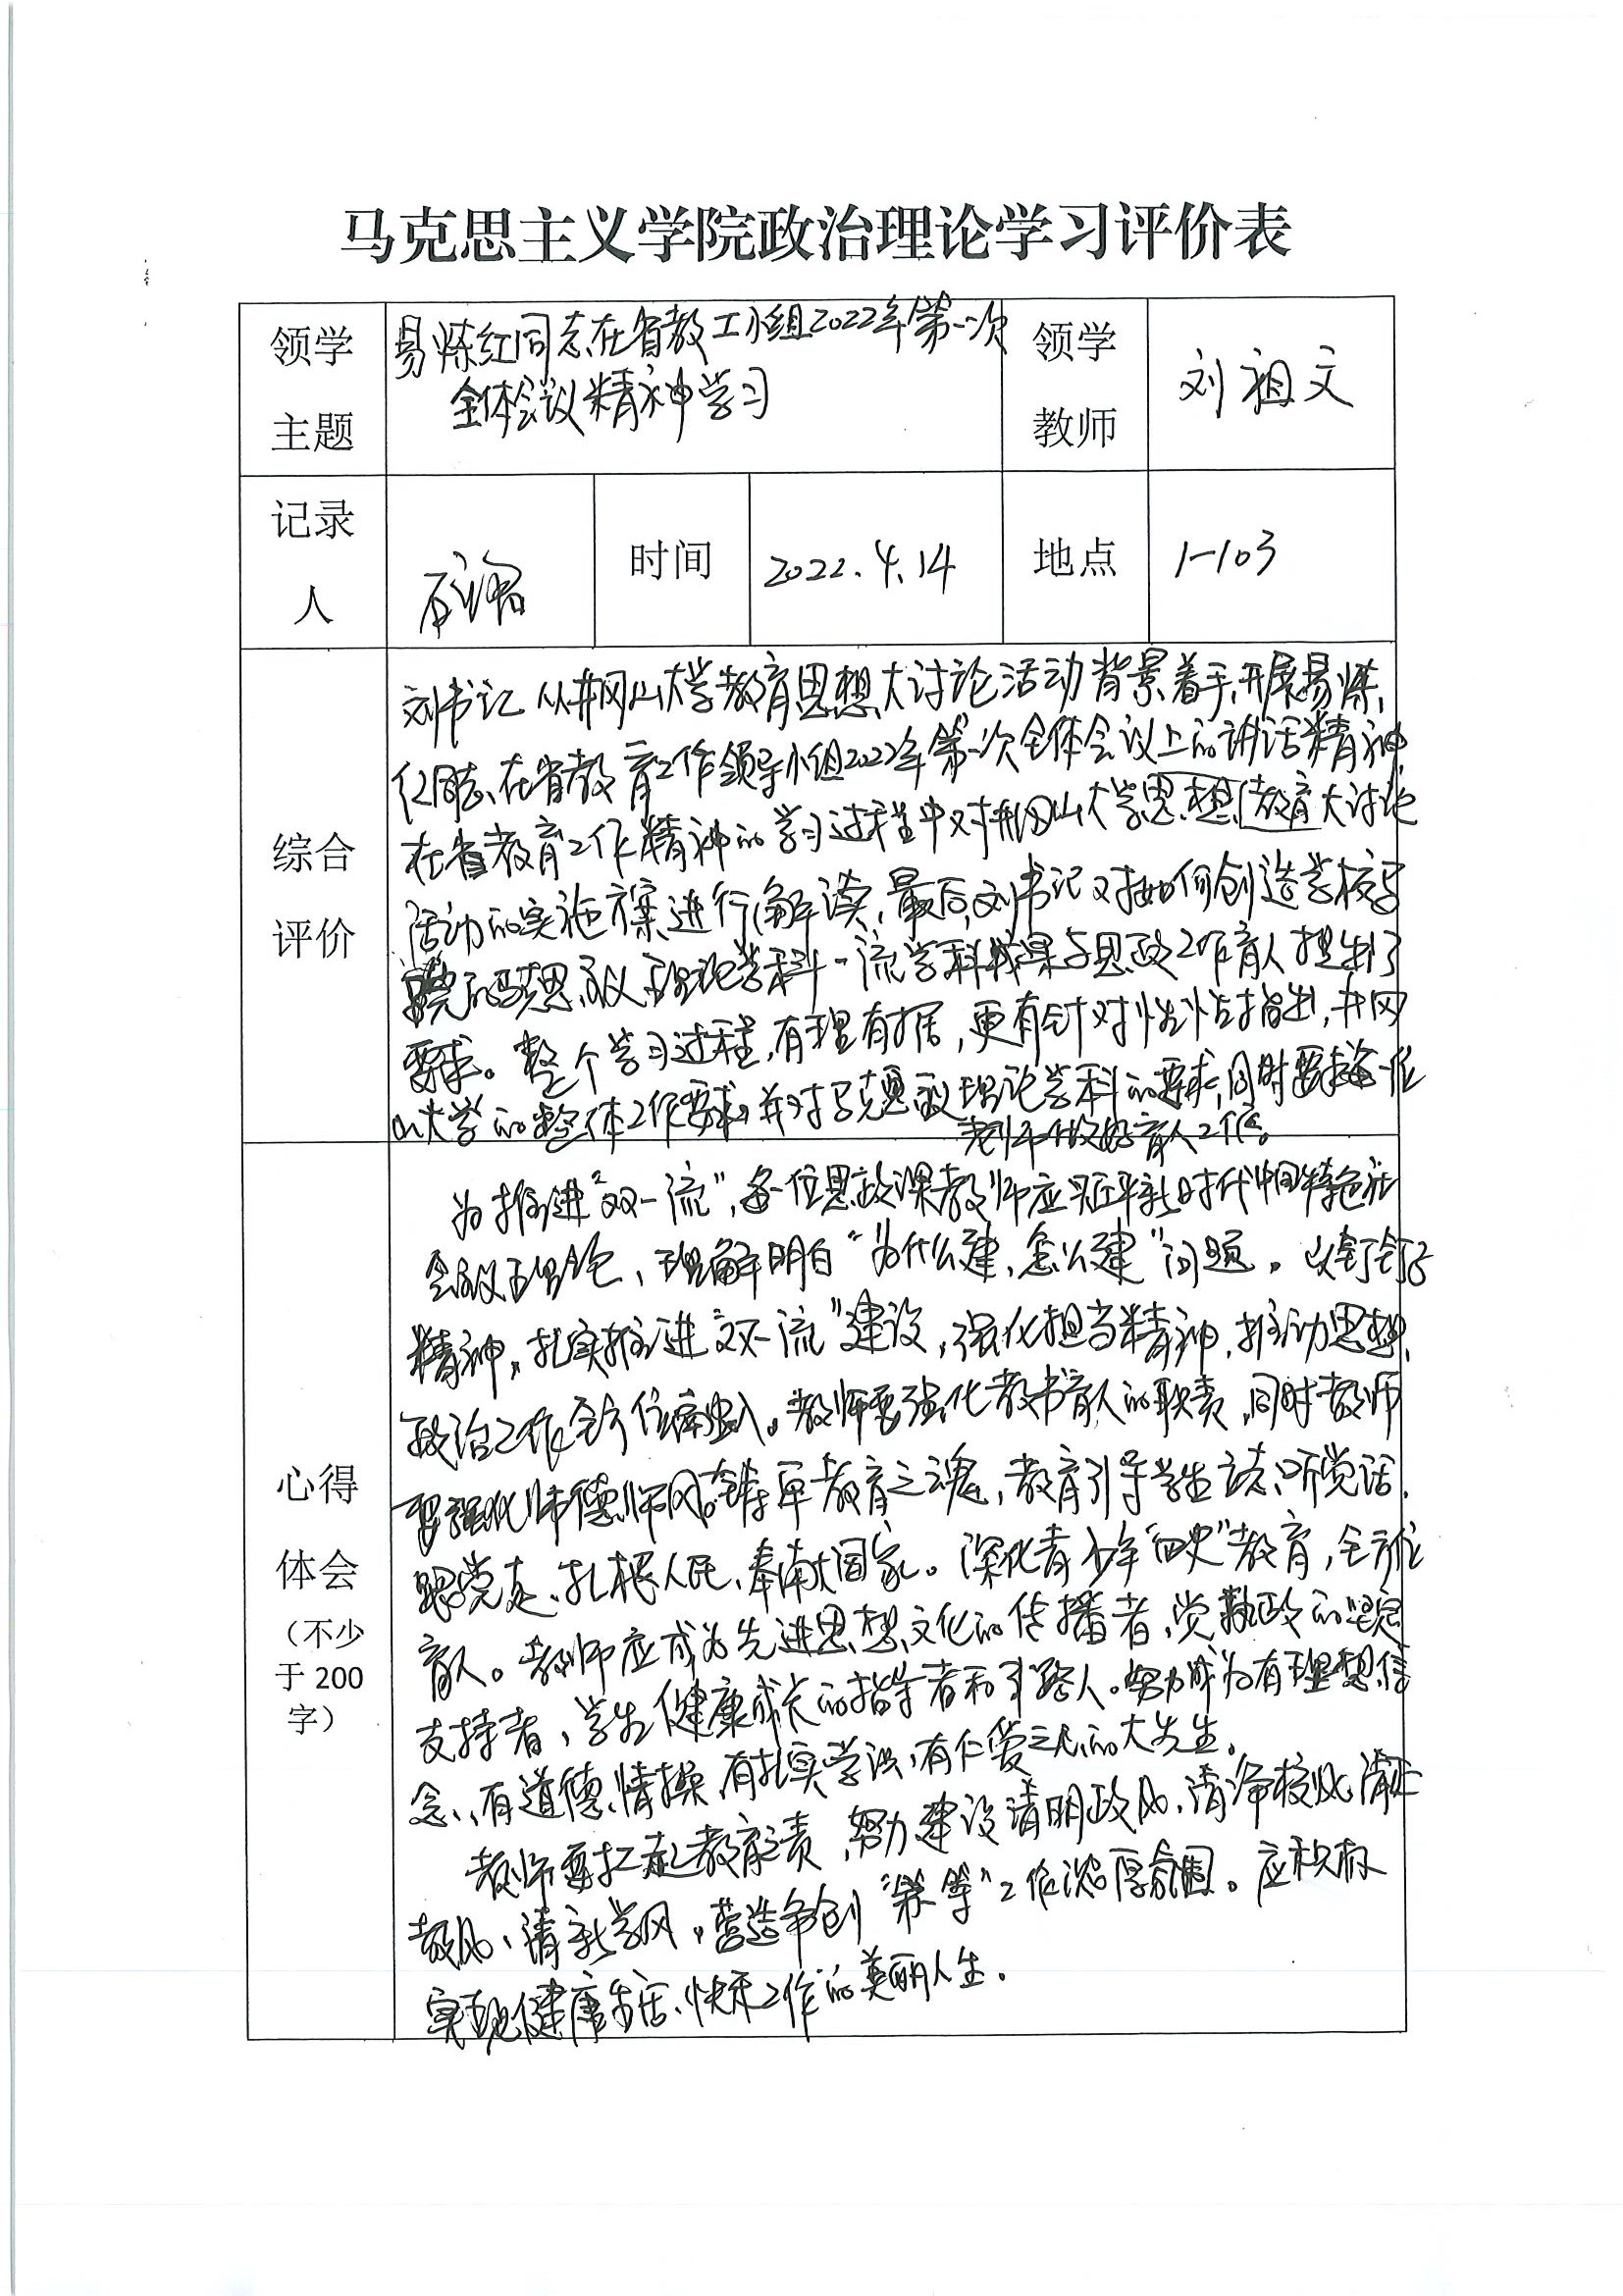 马克思主义学院政治理论学习评价表
领学
主题
易炼红同志在省教工小组2022年第一次
全体会议精神学习
领学
教师
刘祖文
记录
人
时间
2022.4.14
地点
1-103
综合
评价
刘书记从井冈山大学教育思想大讨论活动背景着手,开展易炼
红同志在省教育工作领导小组2022年第一次全体会议上的讲话精神
在省教育工作精神的学习过程中对井冈山大学思想教育大讨论
活动的实施方案进行解读,最后,刘书记对如何创造学校
马克思主义理论学科一流学科成果与思政工作育人提出了
要求。整个学习过程,有理有据,更有针对性指出,井冈
山大学的整体工作要求,并对马克思主义理论学科的要求,同时要求每一位
老师做好育人工作。
心得
体会
(不少
于200
字)
为推进"双一流",每一位思政课教师应 新时代中国特色社
会主义理论,理解明白"为什么建,怎么建"问题。以钉钉子
精神,扎实推进"双一流"建设,强化担当精神,推动思想
政治工作全方位 。教师要强化教书育人的职责,同时教师
要强化师德师风。铸牢教育之魂,教育引导学生 听党话、
跟党走、扎根人民、奉献国家。深化青少年"四史"教育,全方位
育人。教师应成为先进思想文化的传播者,党执政的坚定
支持者,学生健康成长的指导者和引路人。努力成为有理想信
念、有道德情操、有扎实学识、有仁爱之心的大先生。
教师要扛起教育之责,努力建设清明政风、清净校风、清正
教风、清新学风,营造争创"第一等"工作浓厚氛围。应积极
实现健康生活、快乐工作的美丽人生。